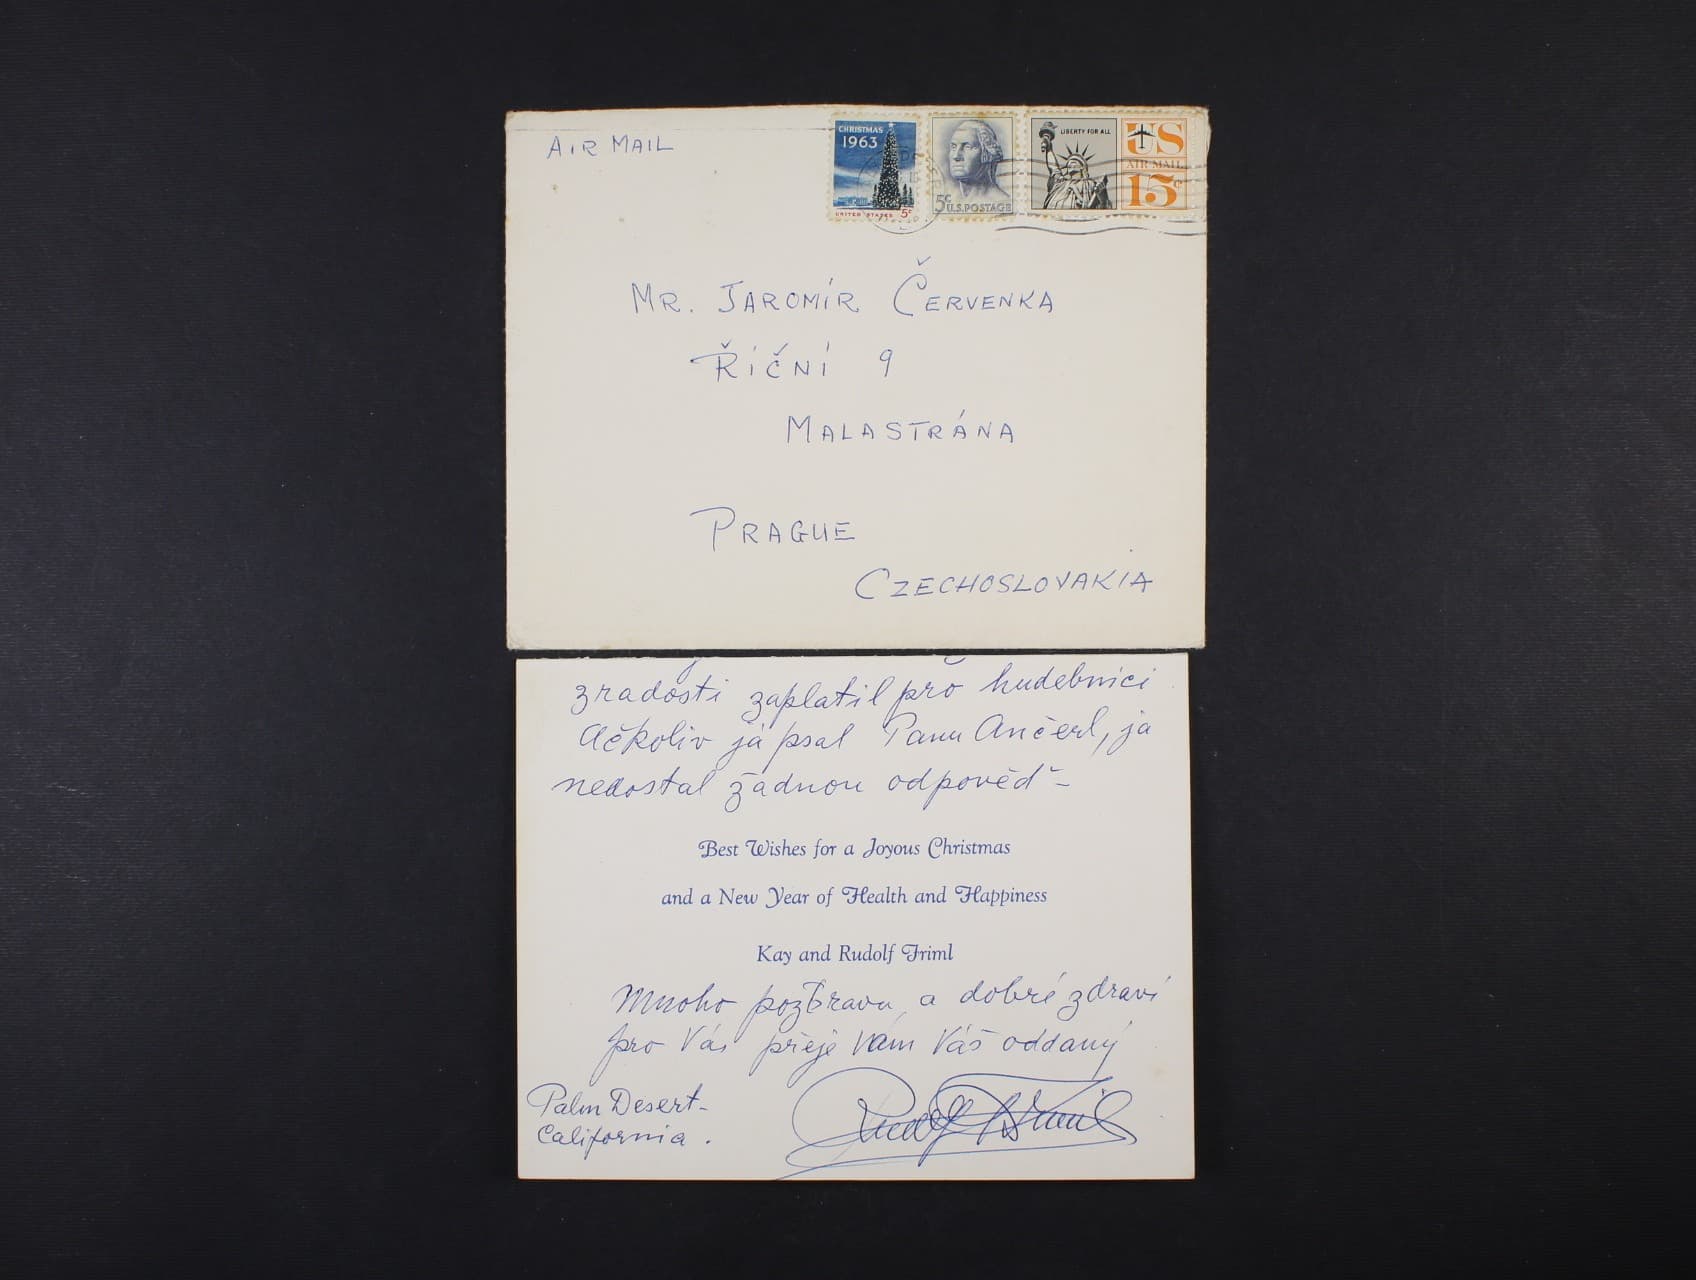 AIR MAIL
CHRISTMAS
1963
UNITED STATES 5c
5c U.S. POSTAGE
LIBERTY FOR ALL
US
AIR MAIL
15c
MR. JAROMÍR ČERVENKA
ŘÍČNÍ 9
MALASTRÁNA
PRAGUE
CZECHOSLOVAKIA
zradosti zaplatil pro hudebnici
Ačkoliv já psal Panu Ančerl, ja
nedostal žádnou odpověď –
Best Wishes for a Joyous Christmas
and a New Year of Health and Happiness
Kay and Rudolf Friml
Mnoho pozdravu a dobré zdraví
pro Vás přeje Vám Váš oddaný
Palm Desert –
California.
Rudolf Friml